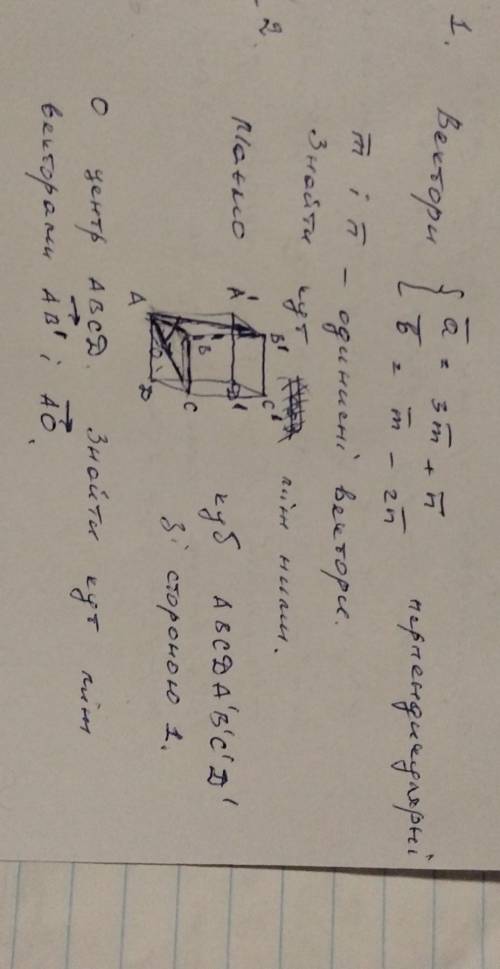 1. Вектори { a̅ = 3m̅ + n̅
b̅ = m̅ - 2n̅ перпендикулярні
m̅ і n̅ - одиничні вектори.
Знайти кут між ними.
2. Маємо куб ABCDA'B'C'D'
зі стороною 1.
A' B' C' D'
A B C D O
O центр ABCD. Знайти кут між
векторами AB'→ і AO→.